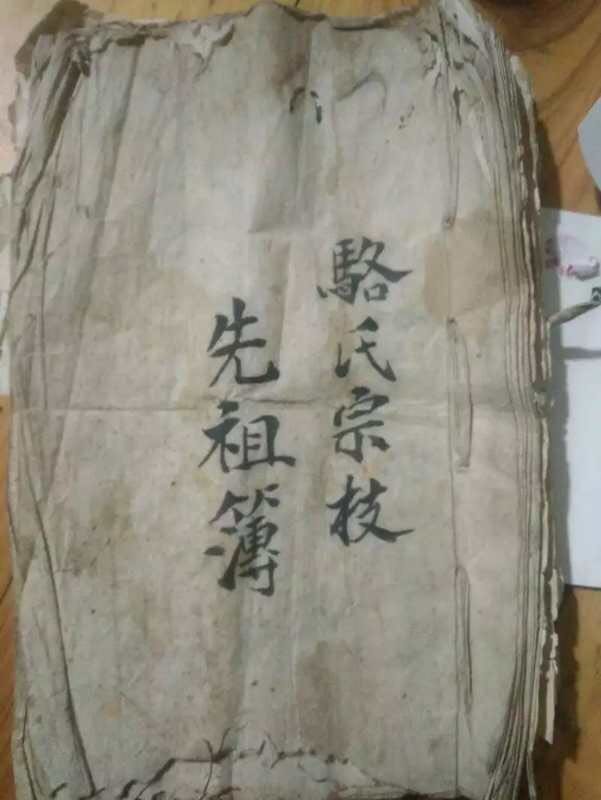 駱氏宗枝
先祖簿